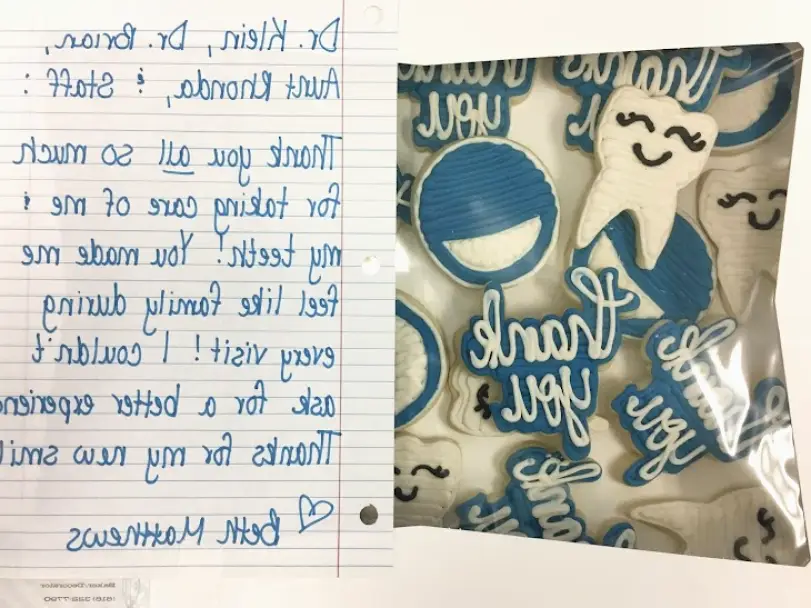 Dr. Klein, Dr. Brian,
Aunt Rhonda, & Staff :
Thank you all so much
for taking care of me &
my teeth! You made me
feel like family during
every visit! I couldn't
ask for a better experienc
Thanks for my new smil
Beth Matthews
Baker/Decorator
thank
you
thank
you
thank
you
thank